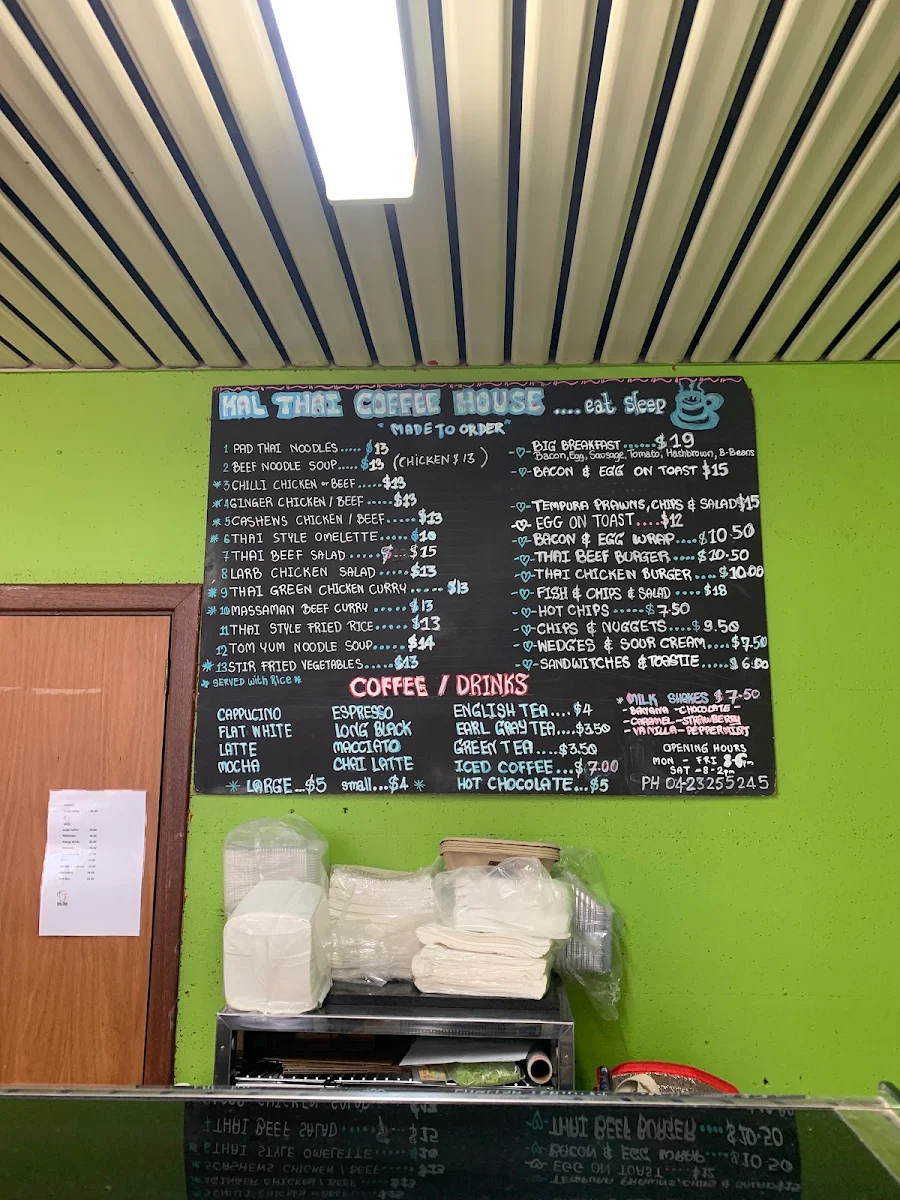 KAL THAI COFFEE HOUSE ....eat sleep
"MADE TO ORDER"
1 PAD THAI NOODLES......$13
2 BEEF NOODLE SOUP.....$13 (CHICKEN $13)
*3 CHILLI CHICKEN or BEEF.....$13
*4 GINGER CHICKEN / BEEF.....$13
*5 CASHEWS CHICKEN / BEEF.....$13
*6 THAI STYLE OMELETTE......$10
7 THAI BEEF SALAD ..... $15
8 LARB CHICKEN SALAD .....$13
*9 THAI GREEN CHICKEN CURRY ......$13
*10 MASSAMAN BEEF CURRY ......$13
11 THAI STYLE FRIED RICE......$13
12 TOM YUM NOODLE SOUP.....$14
*13 STIR FRIED VEGETABLES.....$13
* SERVED with Rice *
BIG BREAKFAST......$19
Bacon, Egg, Sausage, Tomato, Hashbrown, B-Beans
BACON & EGG ON TOAST $15
TEMPURA PRAWNS, CHIPS & SALAD $15
EGG ON TOAST....$12
BACON & EGG WRAP....$10.50
THAI BEEF BURGER....$10.50
THAI CHICKEN BURGER ....$10.00
FISH & CHIPS & SALAD ....$18
HOT CHIPS.....$7.50
CHIPS & NUGGETS....$9.50
WEDGES & SOUR CREAM....$7.50
SANDWITCHES & TOASTIE.....$6.50
COFFEE / DRINKS
CAPPUCINO
FLAT WHITE
LATTE
MOCHA
ESPRESSO
LONG BLACK
MACCIATO
CHAI LATTE
* LARGE...$5 small...$4 *
ENGLISH TEA....$4
EARL GRAY TEA....$3.50
GREEN TEA....$3.50
ICED COFFEE...$7.00
HOT CHOCOLATE...$5
*MILK SHAKES $7.50
- BANANA - CHOCOLATE -
- CARAMEL - STRAWBERRY
- VANILLA - PEPPERMINT
OPENING HOURS
MON - FRI
SAT - 8 - 2pm
PH 0423255245